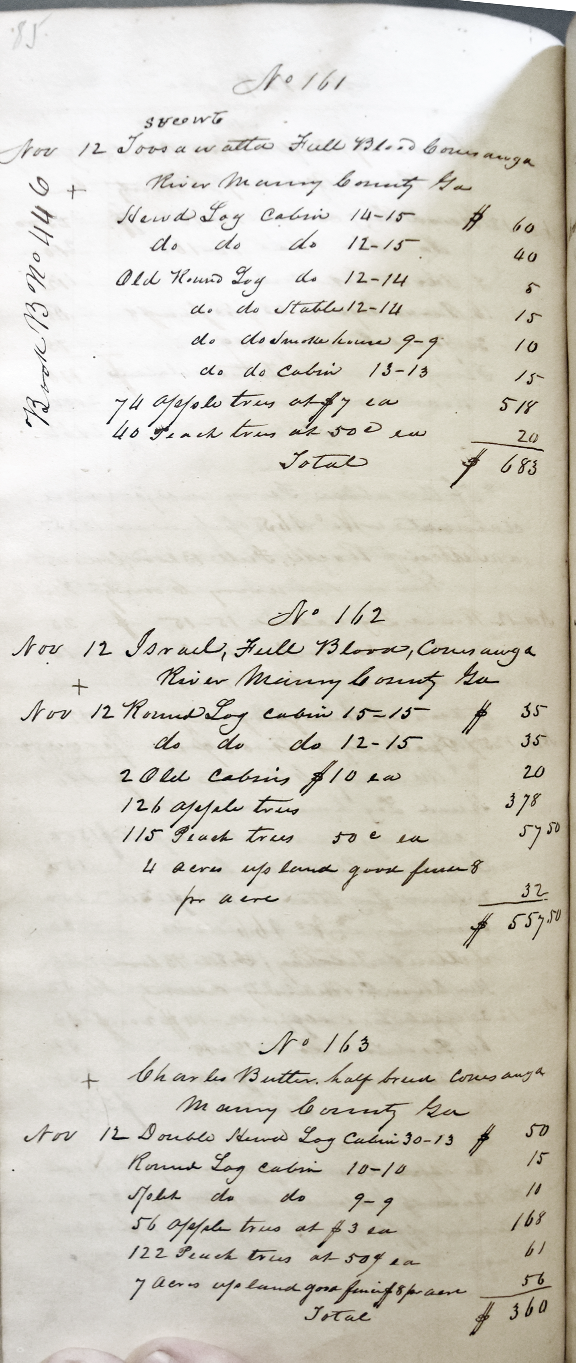 85.
No 161
Nov 12 Toosawatta Full Blood Conesauga
+ River Murry County Ga
Book B No 446
Hewd Log Cabin 14-15 $ 60
do do do 12-15 40
Old Round Log do 12-14 5
do do Stable 12-14 15
do do Smoke house 9-9 10
do do Cabin 13-13 15
74 Apple trees at $7 ea 518
40 Peach trees at 50c ea 20
Total $ 683
No 162
Nov 12 Israel, Full Blood, Conesauga
+ River Murry County Ga
Nov 12 Round Log cabin 15=15 $ 35
do do do 12-15 35
2 Old Cabins $10 ea 20
126 apple trees 378
115 Peach trees 50c ea 57 50
4 acres upland good fence 8
pr acre 32
$ 557 50
No 163
+ Charles Butler. half breed Conesauga
Murry County Ga
Nov 12 Double Hewd Log Cabin 30-13 $ 50
Round Log cabin 10-10 15
Split do do 9-9 10
56 Apple trees at $3 ea 168
122 Peach trees at 50¢ ea 61
7 Acres upland good fence $8 pr acre 56
Total $ 360